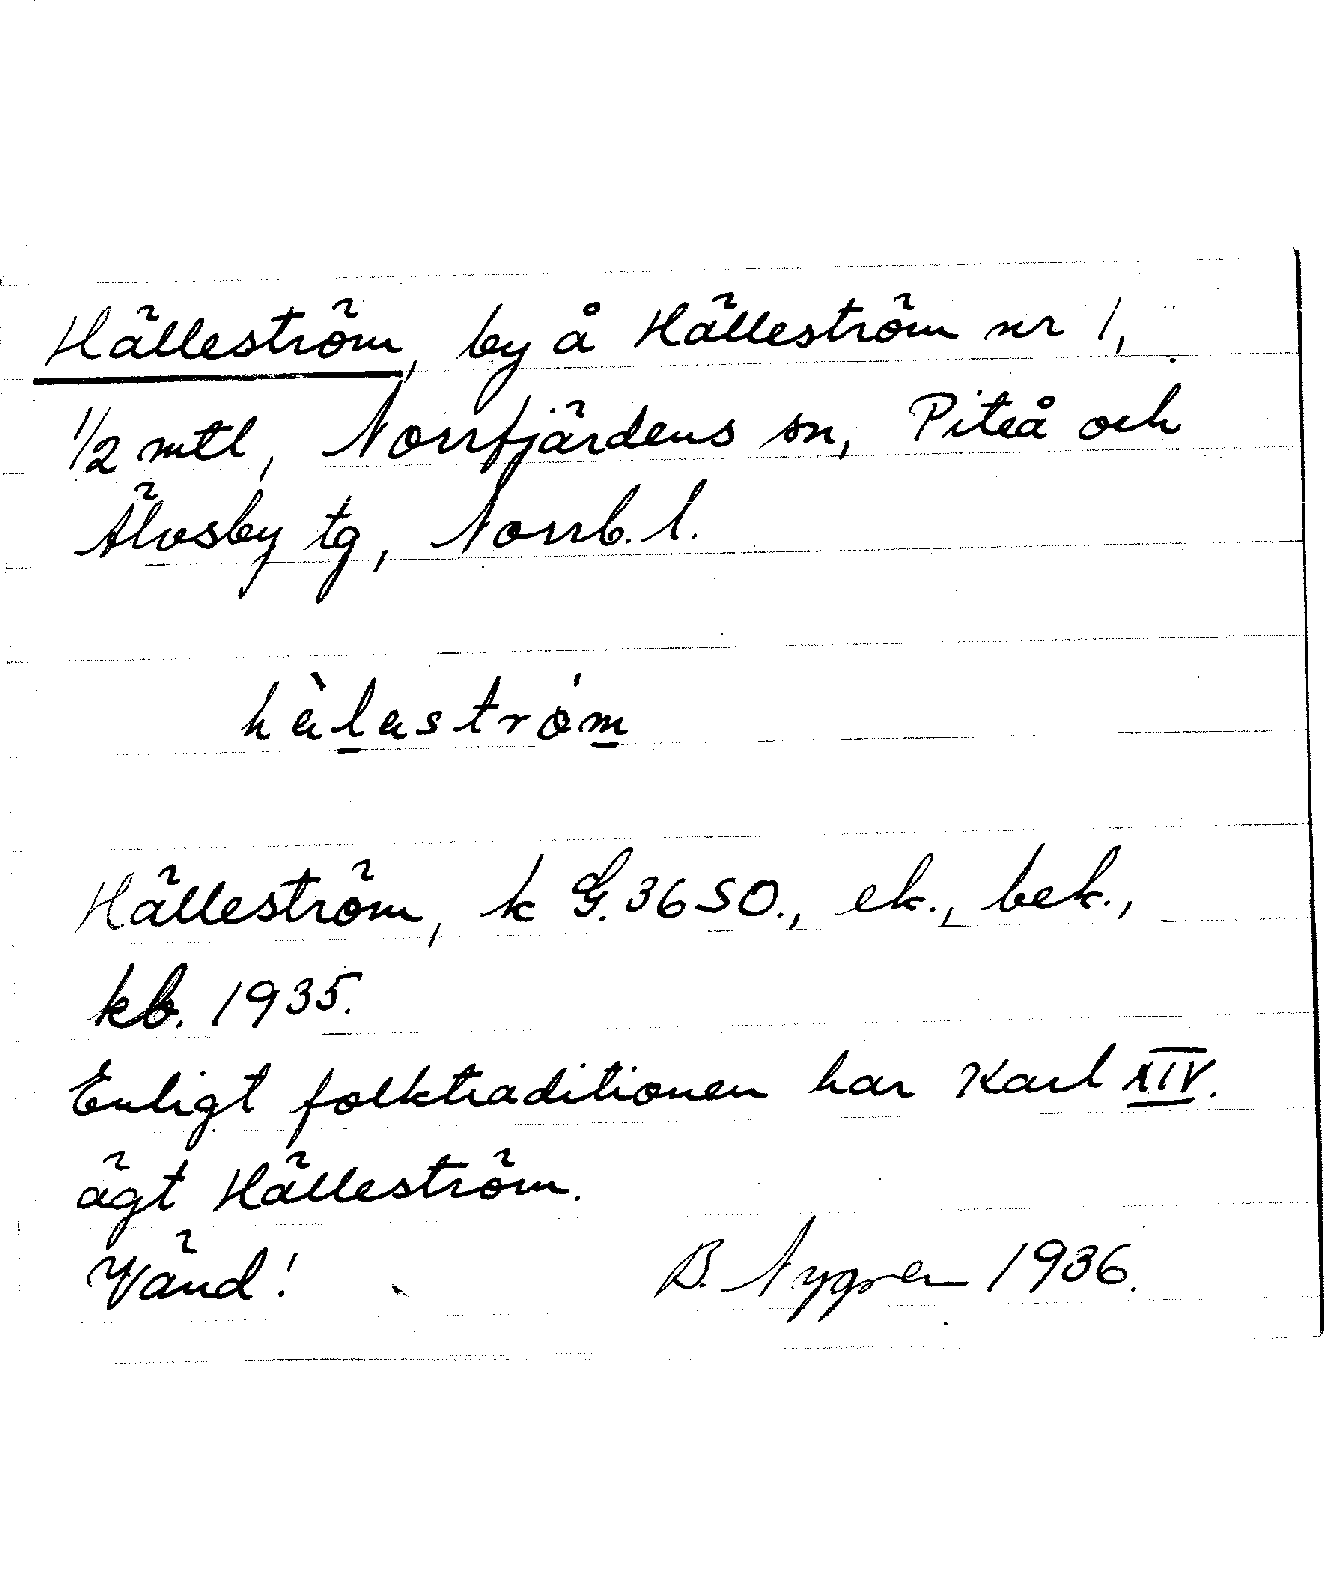 Hälleström, by å Hälleström nr 1,
1/2 mtl, Norrfjärdens sn, Piteå och
Älvsby tg, Norrb. l.
Hälleström, k G. 36 SO., ek., bek.,
kb. 1935.
Enligt folktraditionen har Karl XIV.
ägt Hälleström.
Vänd! B. Nygren 1936.